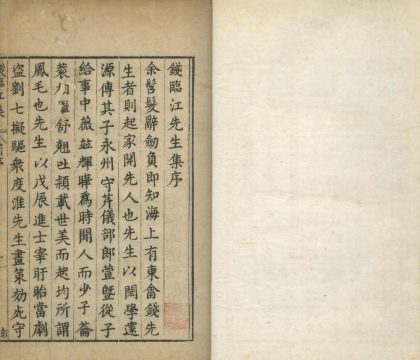 錢臨江先生集序
余髫髮辭劬負即知海上有東畬錢先
生者則起家開先人也先生以閎學遠
源傳其子永州守芹儀部郎萱暨從子
給事中薇竝輝曄爲時聞人而少子
舒翹吐頴載世美而起均所謂
鳳毛也先生以戊辰進士宰盱眙當劇
盜劉七擬驅衆度淮先生畫策効死守